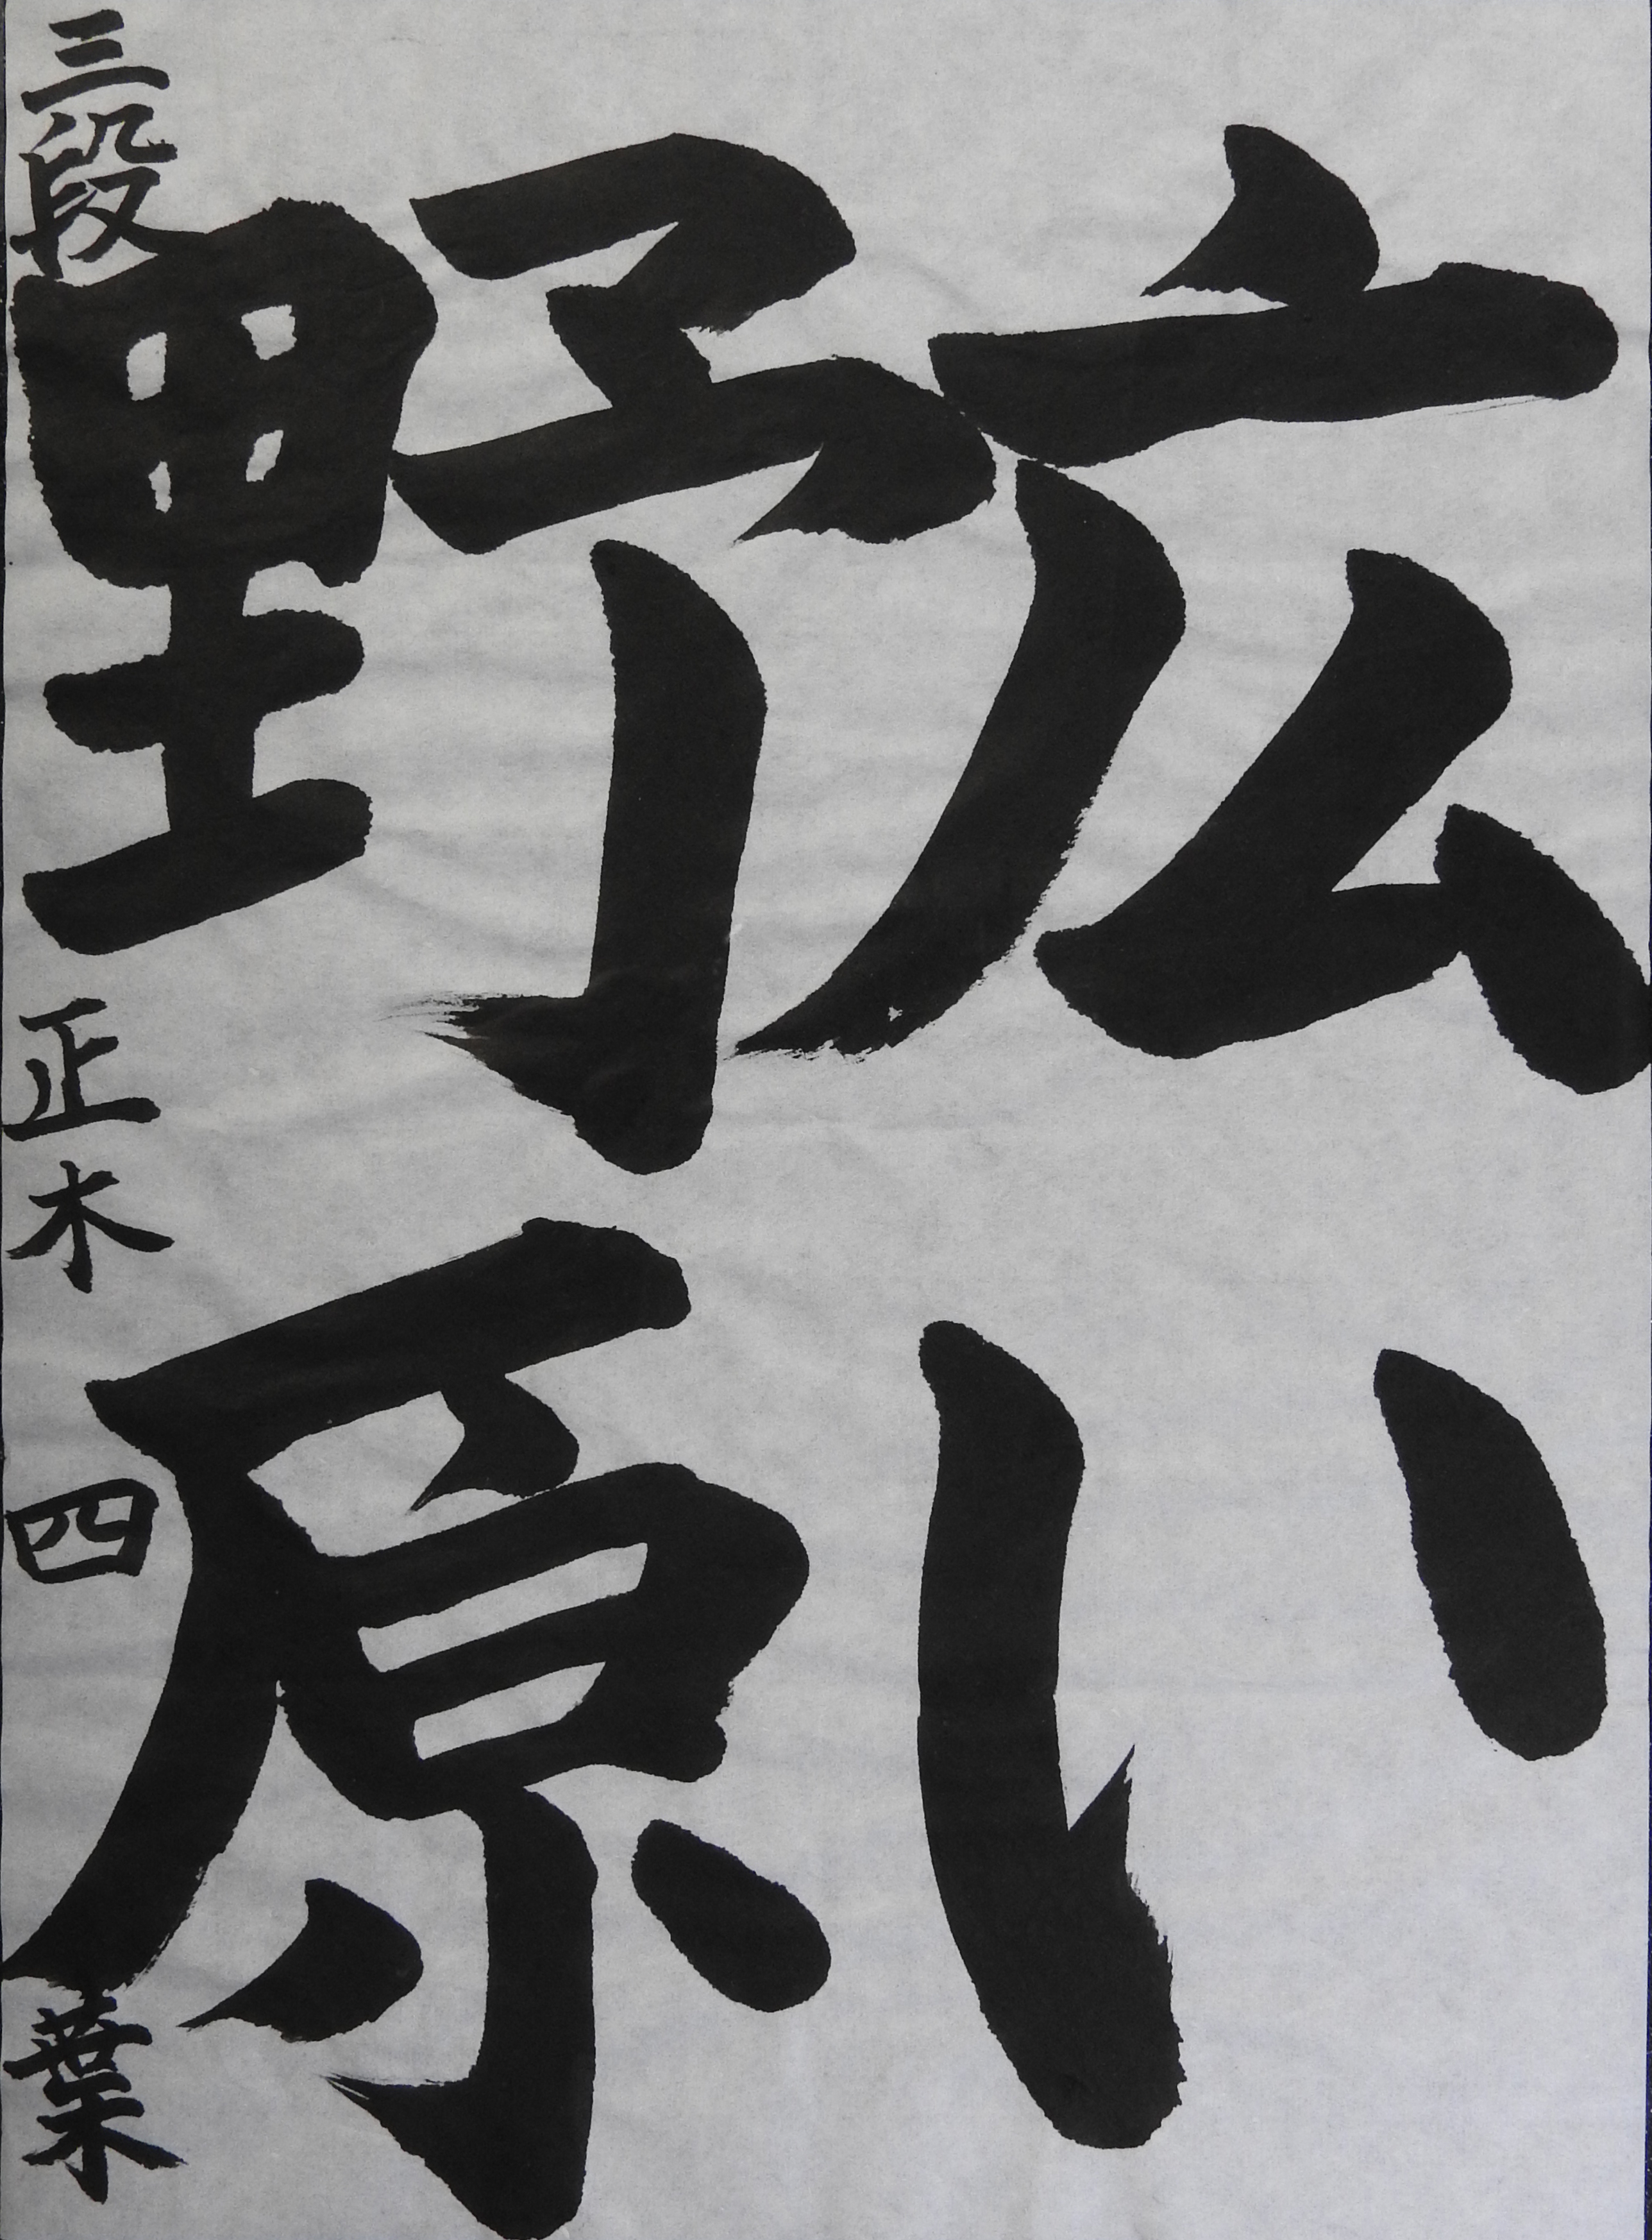 広い
野原
三段 正木 四葉